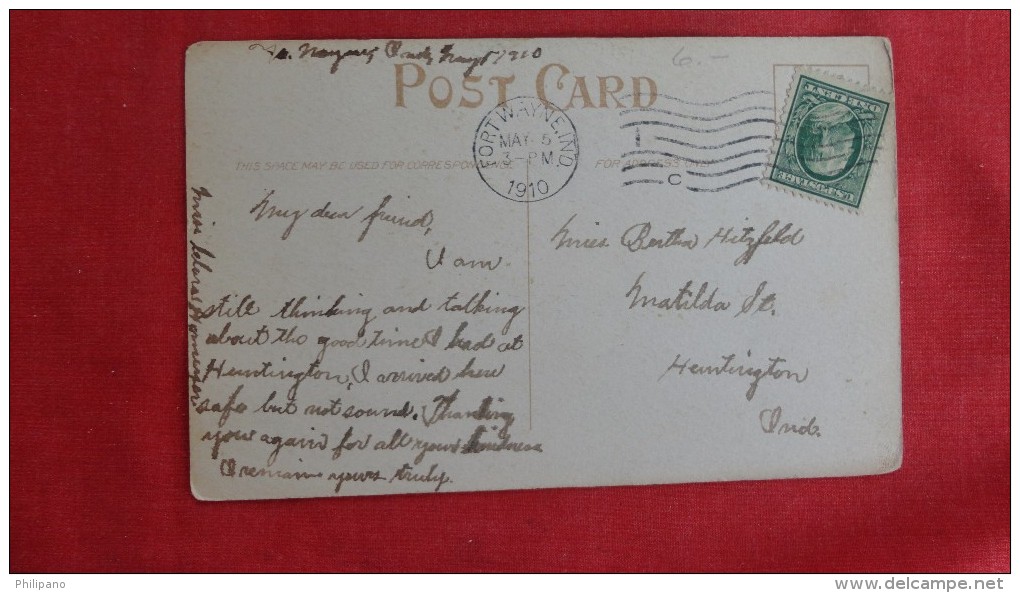 Ft. Wayne, Ind, May 5 1910
6.-
POST CARD
FORT WAYNE, IND.
MAY 5
3-PM
1910
C
THIS SPACE MAY BE USED FOR CORRESPONDENCE
FOR ADDRESS ONLY
My dear friend,
I am
still thinking and talking
about the good time I had at
Huntington, I arrived here
safe but not sound. Thanking
you again for all your kindness
I remain yours truly.
Miss Clara
Miss Bertha Hitzfeld
Matilda St.
Huntington
Ind.
U.S. POSTAGE
ONE CENT
Philipano
www.delcampe.net